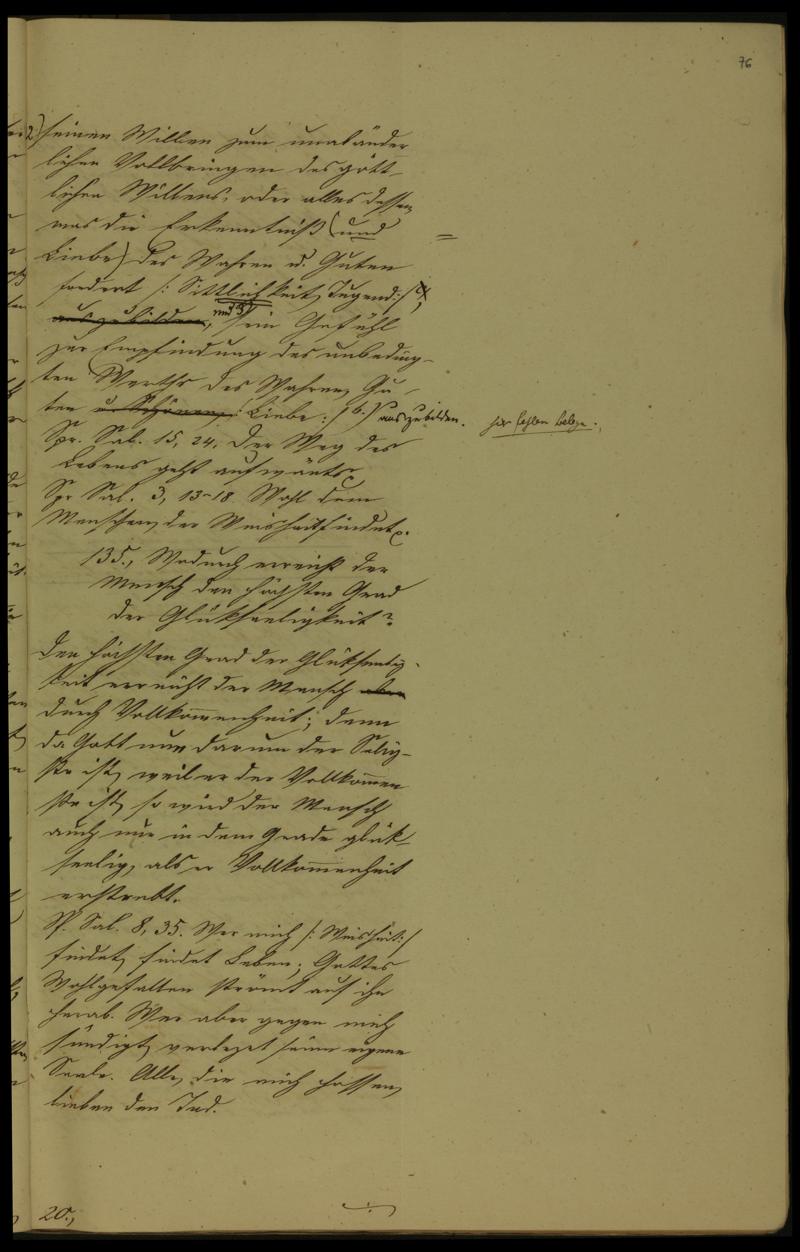 76
2) seinen Willen zum unabänder
lichen Vollbringen des gött-
lichen Willens, oder alles dessen
was die Erkenntniß (und
Liebe) des Wahren u. Guten
fordert /: Sittlichkeit, Tugend :/
auszubilden, und 3) sein Gefühl
zur Empfindung des unbeding-
ten Werths des Wahren, Gu-
ten u. Schönen /: Liebe :/ auszubilden. hier fehlen Belege.
Spr. Sal. 15, 24. Der Weg des
Lebens geht aufwärts
Spr Sal. 3, 13-18. Wohl dem
Menschen, der Weisheit findet
135., Wodurch erreicht der
Mensch den höchsten Grad
der Glükseeligkeit?
Den höchsten Grad der Glükseelig-
keit erreicht der Mensch
durch Vollkom̄enheit; denn
da Gott nur darum der Selig-
ste ist, weil er der Vollkom̄en
ste ist, so wird der Mensch
auch nur in dem Grade glük-
seelig, als er Vollkom̄enheit
erstrebt.
Sp. Sal. 8, 35. Wer mich /: Weisheit :/
findet, findet Leben; Gottes
Wohlgefallen strömt auf ihn
herab. Wer aber gegen mich
sündigt, verlezet seine eigene
Seele. Alle, die mich hassen,
lieben den Tod.
20.,